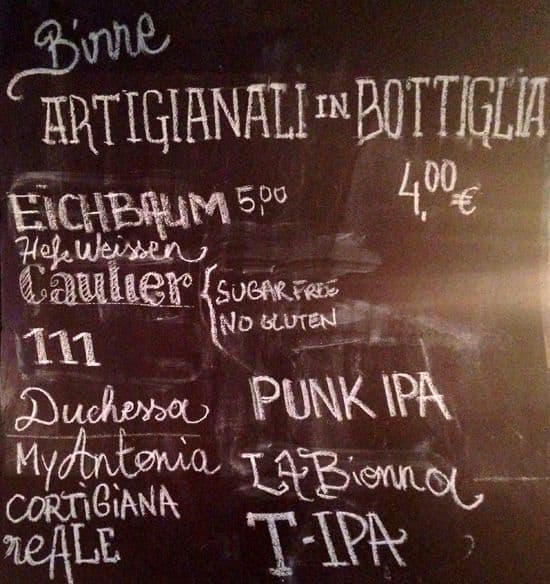 Birre
ARTIGIANALI IN BOTTIGLIA
4,00 €
EICHBAUM 5,00
Hefe Weissen
Caulier { SUGAR FREE
NO GLUTEN
111
Duchessa
PUNK IPA
My Antonia
LA Bionna
CORTIGIANA
T-IPA
reALE